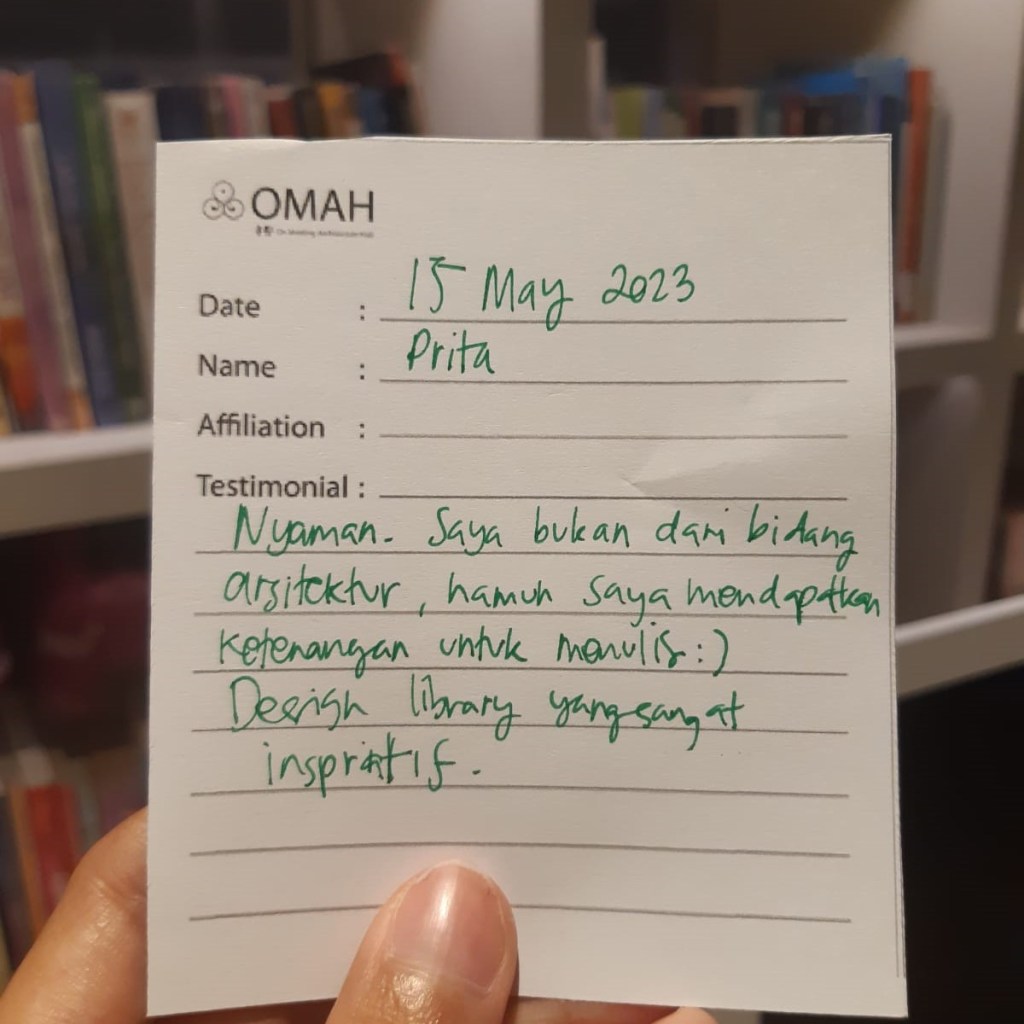 OMAH
Date : 15 May 2023
Name : Prita
Affiliation :
Testimonial :
Nyaman. Saya bukan dari bidang
arsitektur, namun saya mendapatkan
ketenangan untuk menulis :)
Design library yang sangat
inspiratif.